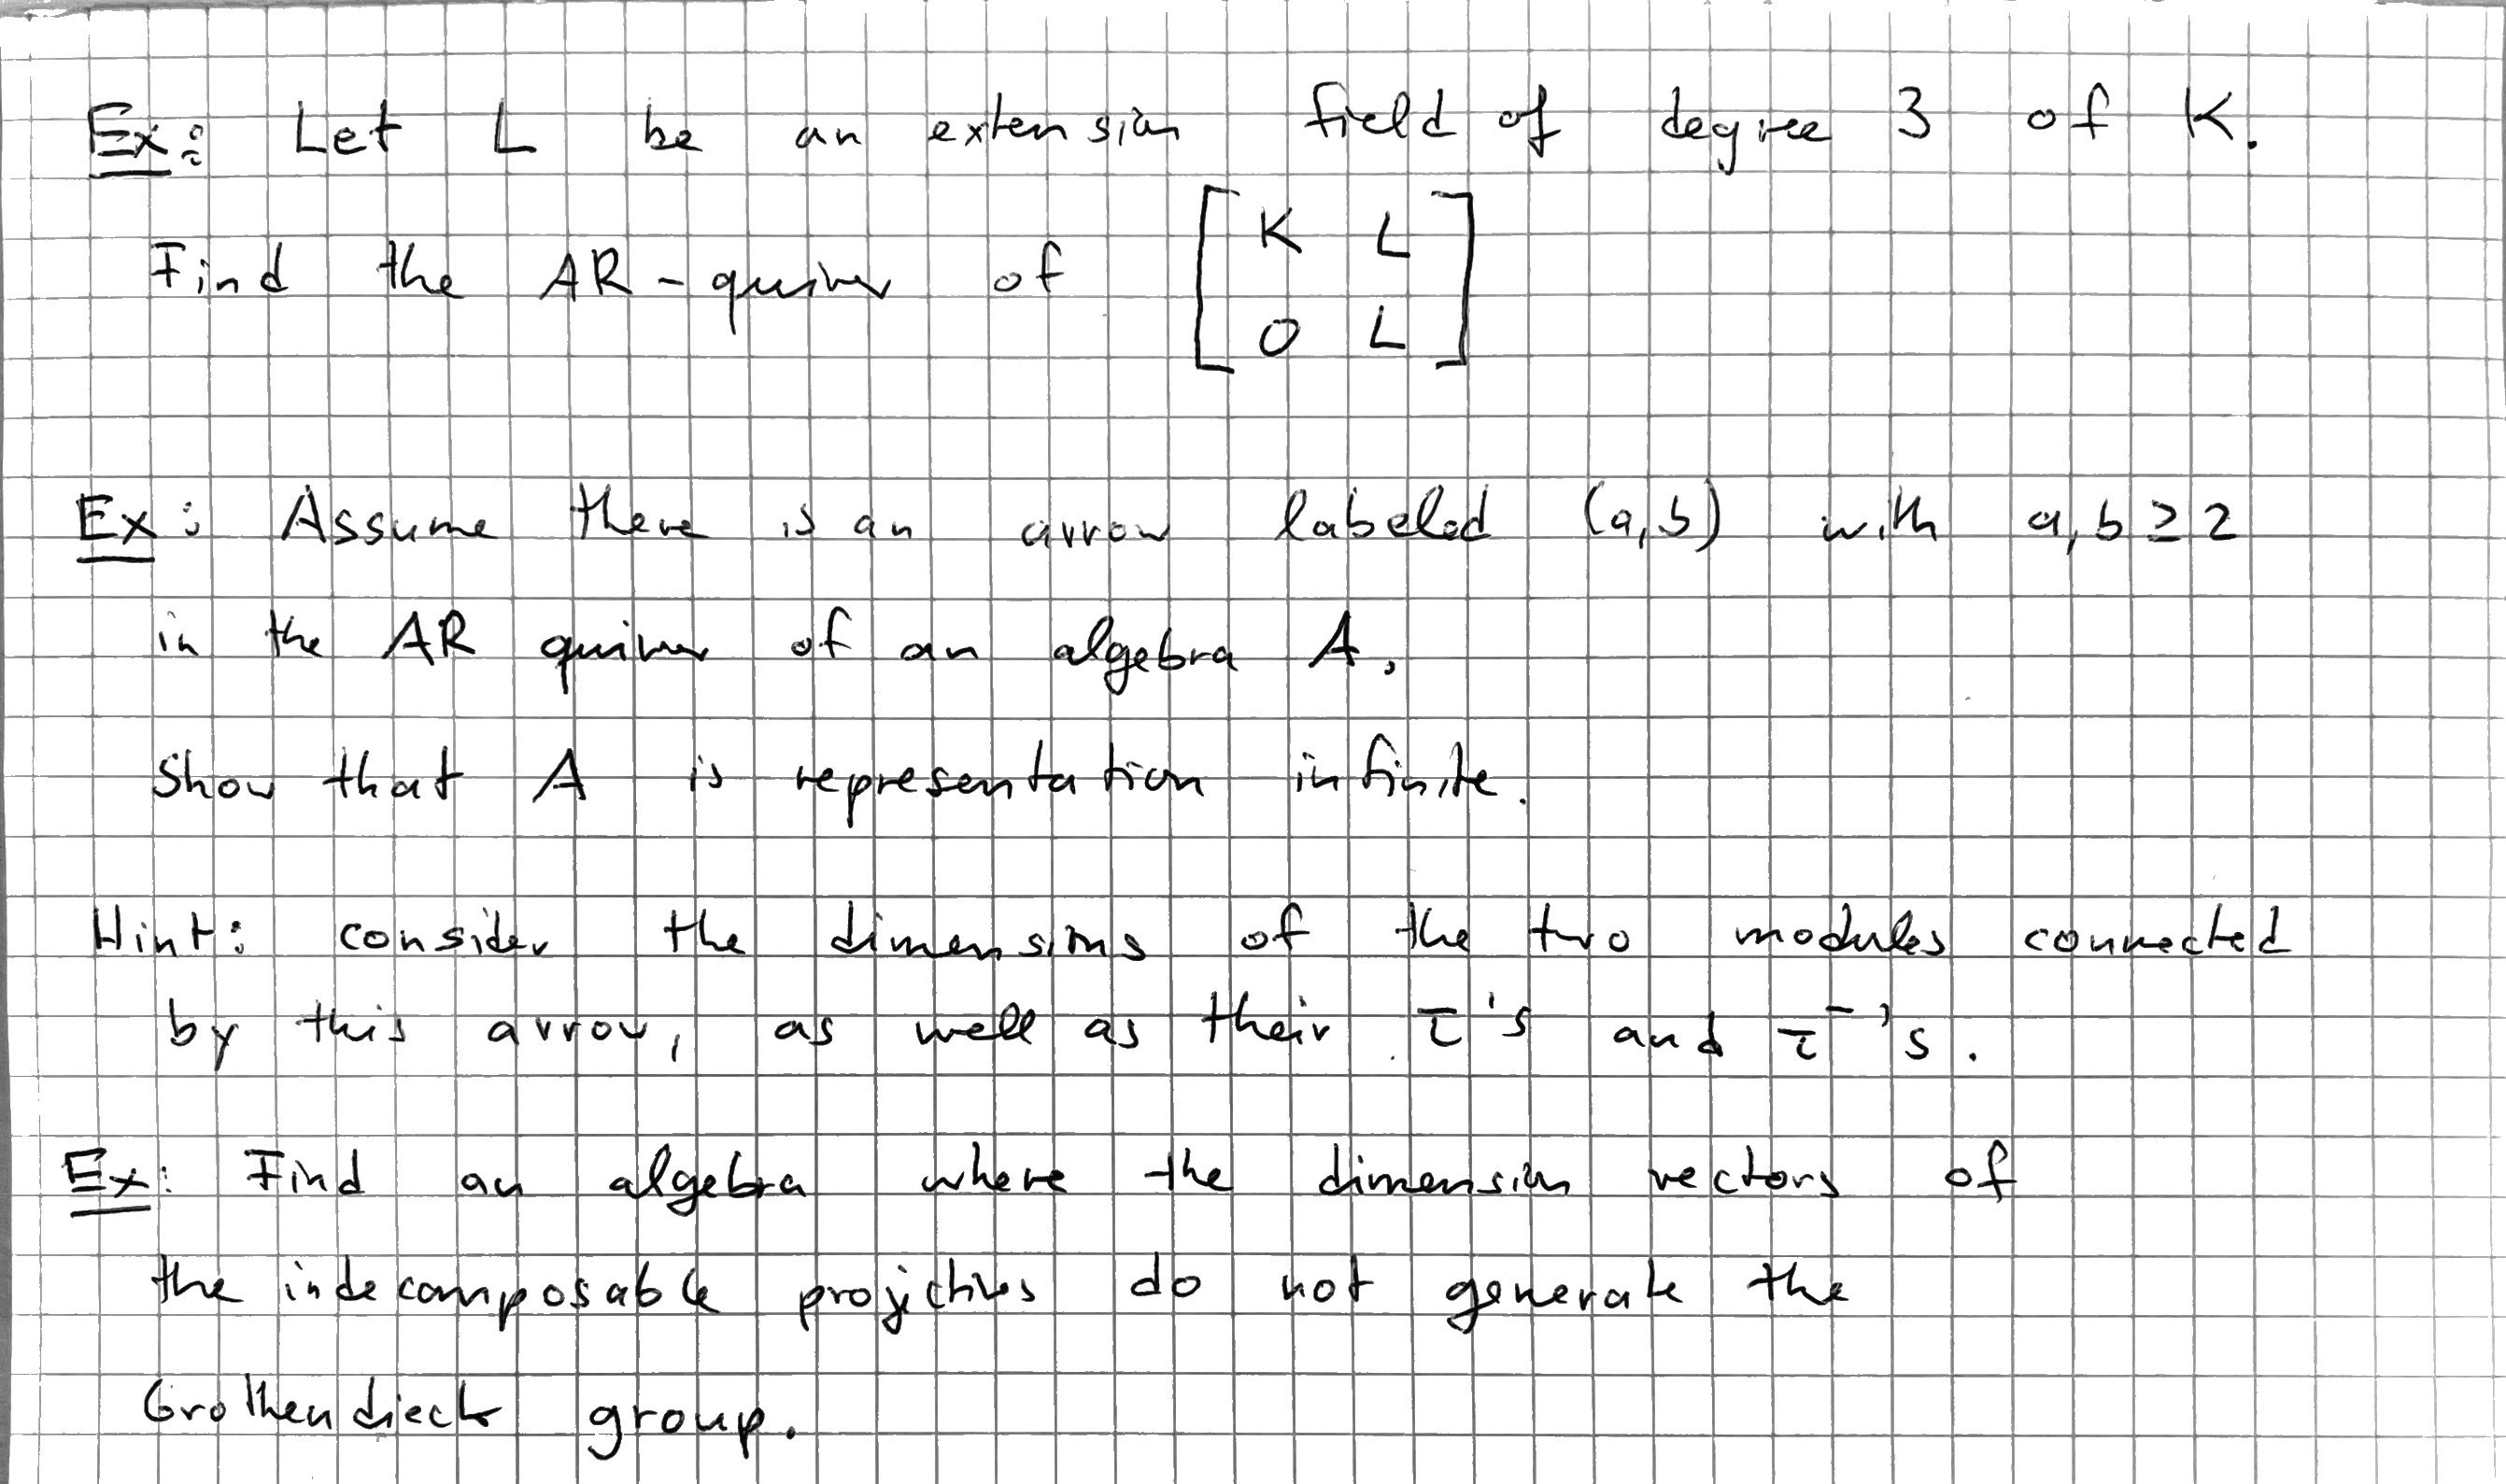 Ex: Let L be an extension field of degree 3 of K.
Find the AR-quiver of [ K L
0 L ]
Ex: Assume there is an arrow labeled (a,b) with a,b ≥ 2
in the AR quiver of an algebra A.
Show that A is representation infinite.
Hint: consider the dimensions of the two modules connected
by this arrow, as well as their τ's and τ⁻'s.
Ex: Find an algebra where the dimension vectors of
the indecomposable projectives do not generate the
Grothendieck group.